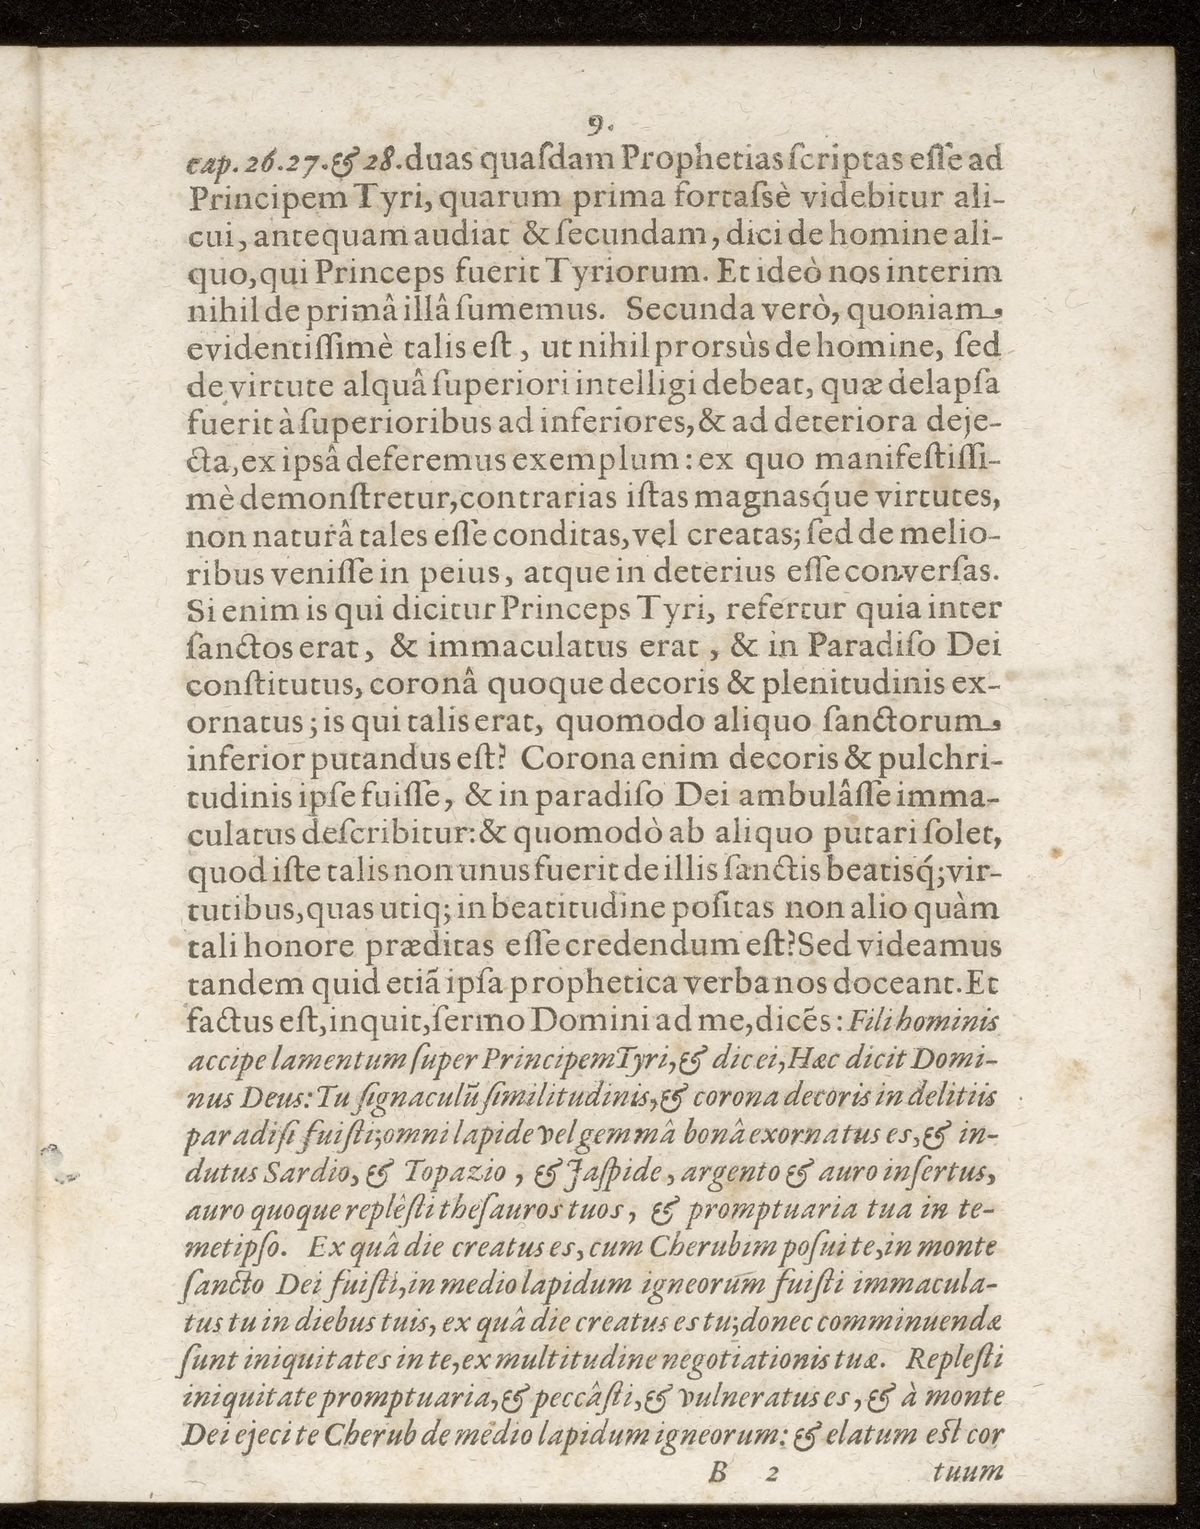 9.
cap. 26. 27. & 28. duas quaſdam Prophetias ſcriptas eſſe ad
Principem Tyri, quarum prima fortaſsè videbitur ali-
cui, antequam audiat & ſecundam, dici de homine ali-
quo, qui Princeps fuerit Tyriorum. Et ideò nos interim
nihil de primâ illâ ſumemus. Secunda verò, quoniam
evidentiſſimè talis eſt, ut nihil prorsùs de homine, ſed
de virtute alquâ ſuperiori intelligi debeat, quæ delapſa
fuerit à ſuperioribus ad inferiores, & ad deteriora deje-
cta, ex ipsâ deferemus exemplum: ex quo manifeſtiſſi-
mè demonſtretur, contrarias iſtas magnasq́ue virtutes,
non naturâ tales eſſe conditas, vel creatas; ſed de melio-
ribus veniſſe in peius, atque in deterius eſſe converſas.
Si enim is qui dicitur Princeps Tyri, refertur quia inter
ſanctos erat, & immaculatus erat, & in Paradiſo Dei
conſtitutus, coronâ quoque decoris & plenitudinis ex-
ornatus; is qui talis erat, quomodo aliquo ſanctorum
inferior putandus eſt? Corona enim decoris & pulchri-
tudinis ipſe fuiſſe, & in paradiſo Dei ambulâſſe imma-
culatus deſcribitur: & quomodò ab aliquo putari ſolet,
quod iſte talis non unus fuerit de illis ſanctis beatisq́; vir-
tutibus, quas utiq; in beatitudine poſitas non alio quàm
tali honore præditas eſſe credendum eſt? Sed videamus
tandem quid etiã ipſa prophetica verba nos doceant. Et
factus eſt, inquit, ſermo Domini ad me, dicẽs: Fili hominis
accipe lamentum ſuper Principem Tyri, & dic ei, Hæc dicit Domi-
nus Deus: Tu ſignaculũ ſimilitudinis, & corona decoris in delitiis
paradiſi fuiſti; omni lapide vel gemmâ bonâ exornatus es, & in-
dutus Sardio, & Topazio, & Jaſpide, argento & auro inſertus,
auro quoque replêſti theſauros tuos, & promptuaria tua in te-
metipſo. Ex quâ die creatus es, cum Cherubim poſui te, in monte
ſancto Dei fuiſti, in medio lapidum igneorum fuiſti immacula-
tus tu in diebus tuis, ex quâ die creatus es tu; donec comminuendæ
ſunt iniquitates in te, ex multitudine negotiationis tuæ. Repleſti
iniquitate promptuaria, & peccâſti, & vulneratus es, & à monte
Dei ejeci te Cherub de medio lapidum igneorum: & elatum eſt cor
B 2 tuum